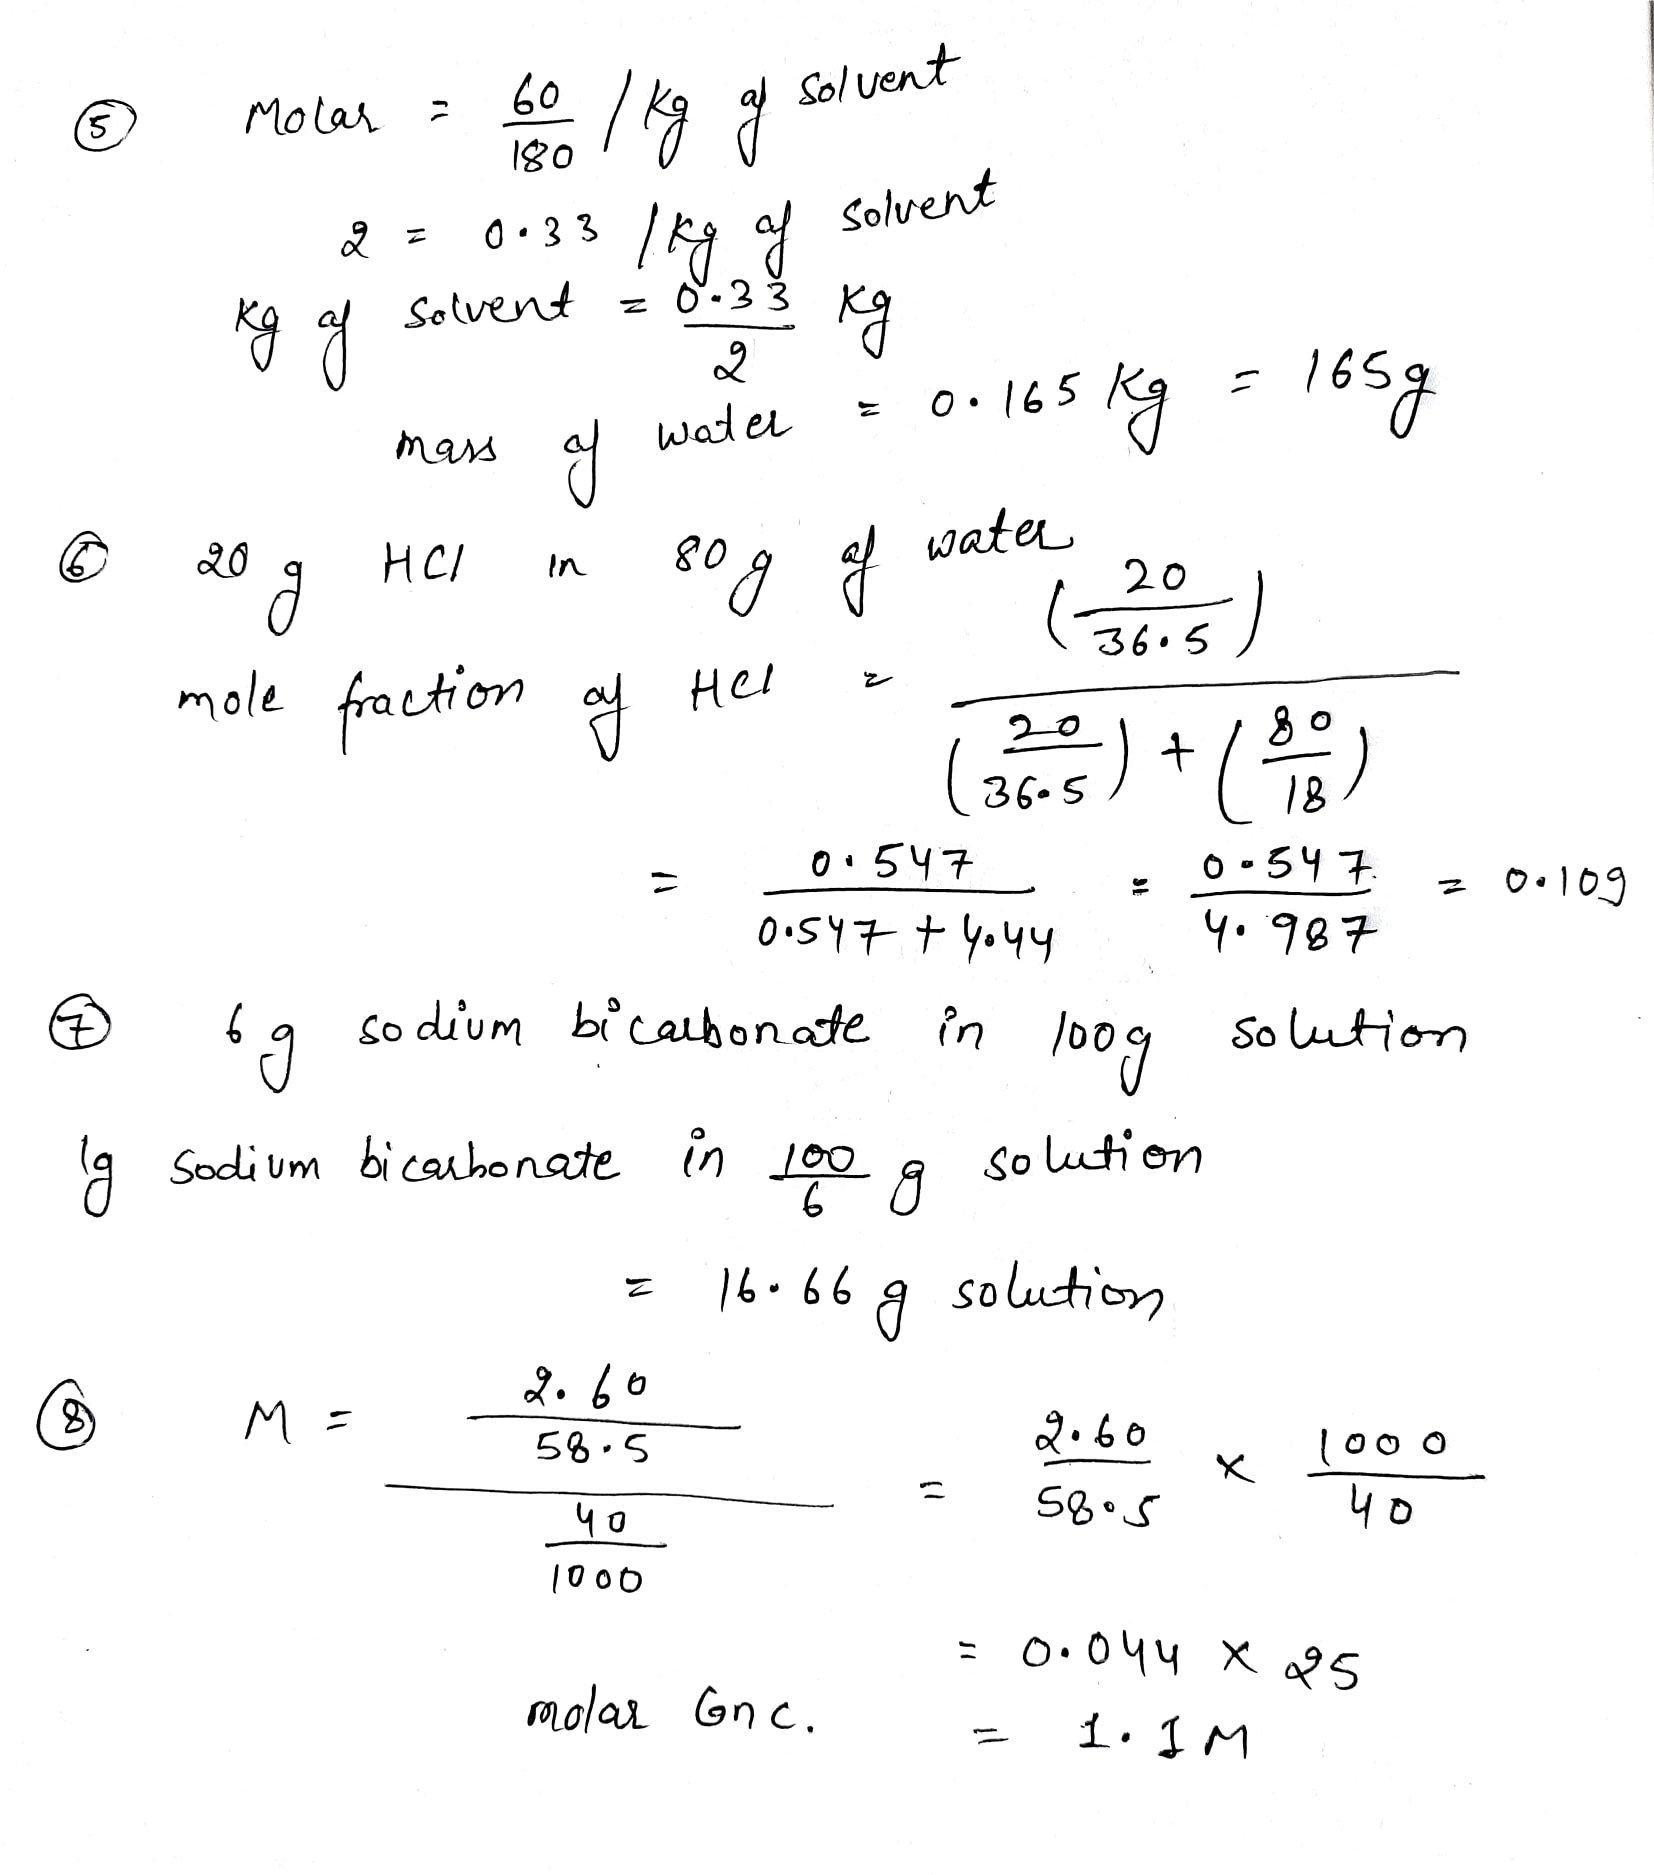 ⑤ Molar = 60/180 / kg of solvent
2 = 0.33 / kg of solvent
kg of solvent = 0.33/2 kg
mass of water = 0.165 kg = 165g
⑥ 20 g HCl in 80 g of water
mole fraction of HCl = (20/36.5) / ((20/36.5) + (80/18))
= 0.547/(0.547 + 4.44) = 0.547/4.987 = 0.109
⑦ 6 g sodium bicarbonate in 100g solution
1g sodium bicarbonate in 100/6 g solution
= 16.66 g solution
⑧ M = (2.60/58.5) / (40/1000) = 2.60/58.5 × 1000/40
= 0.044 × 25
molar Conc. = 1.1 M